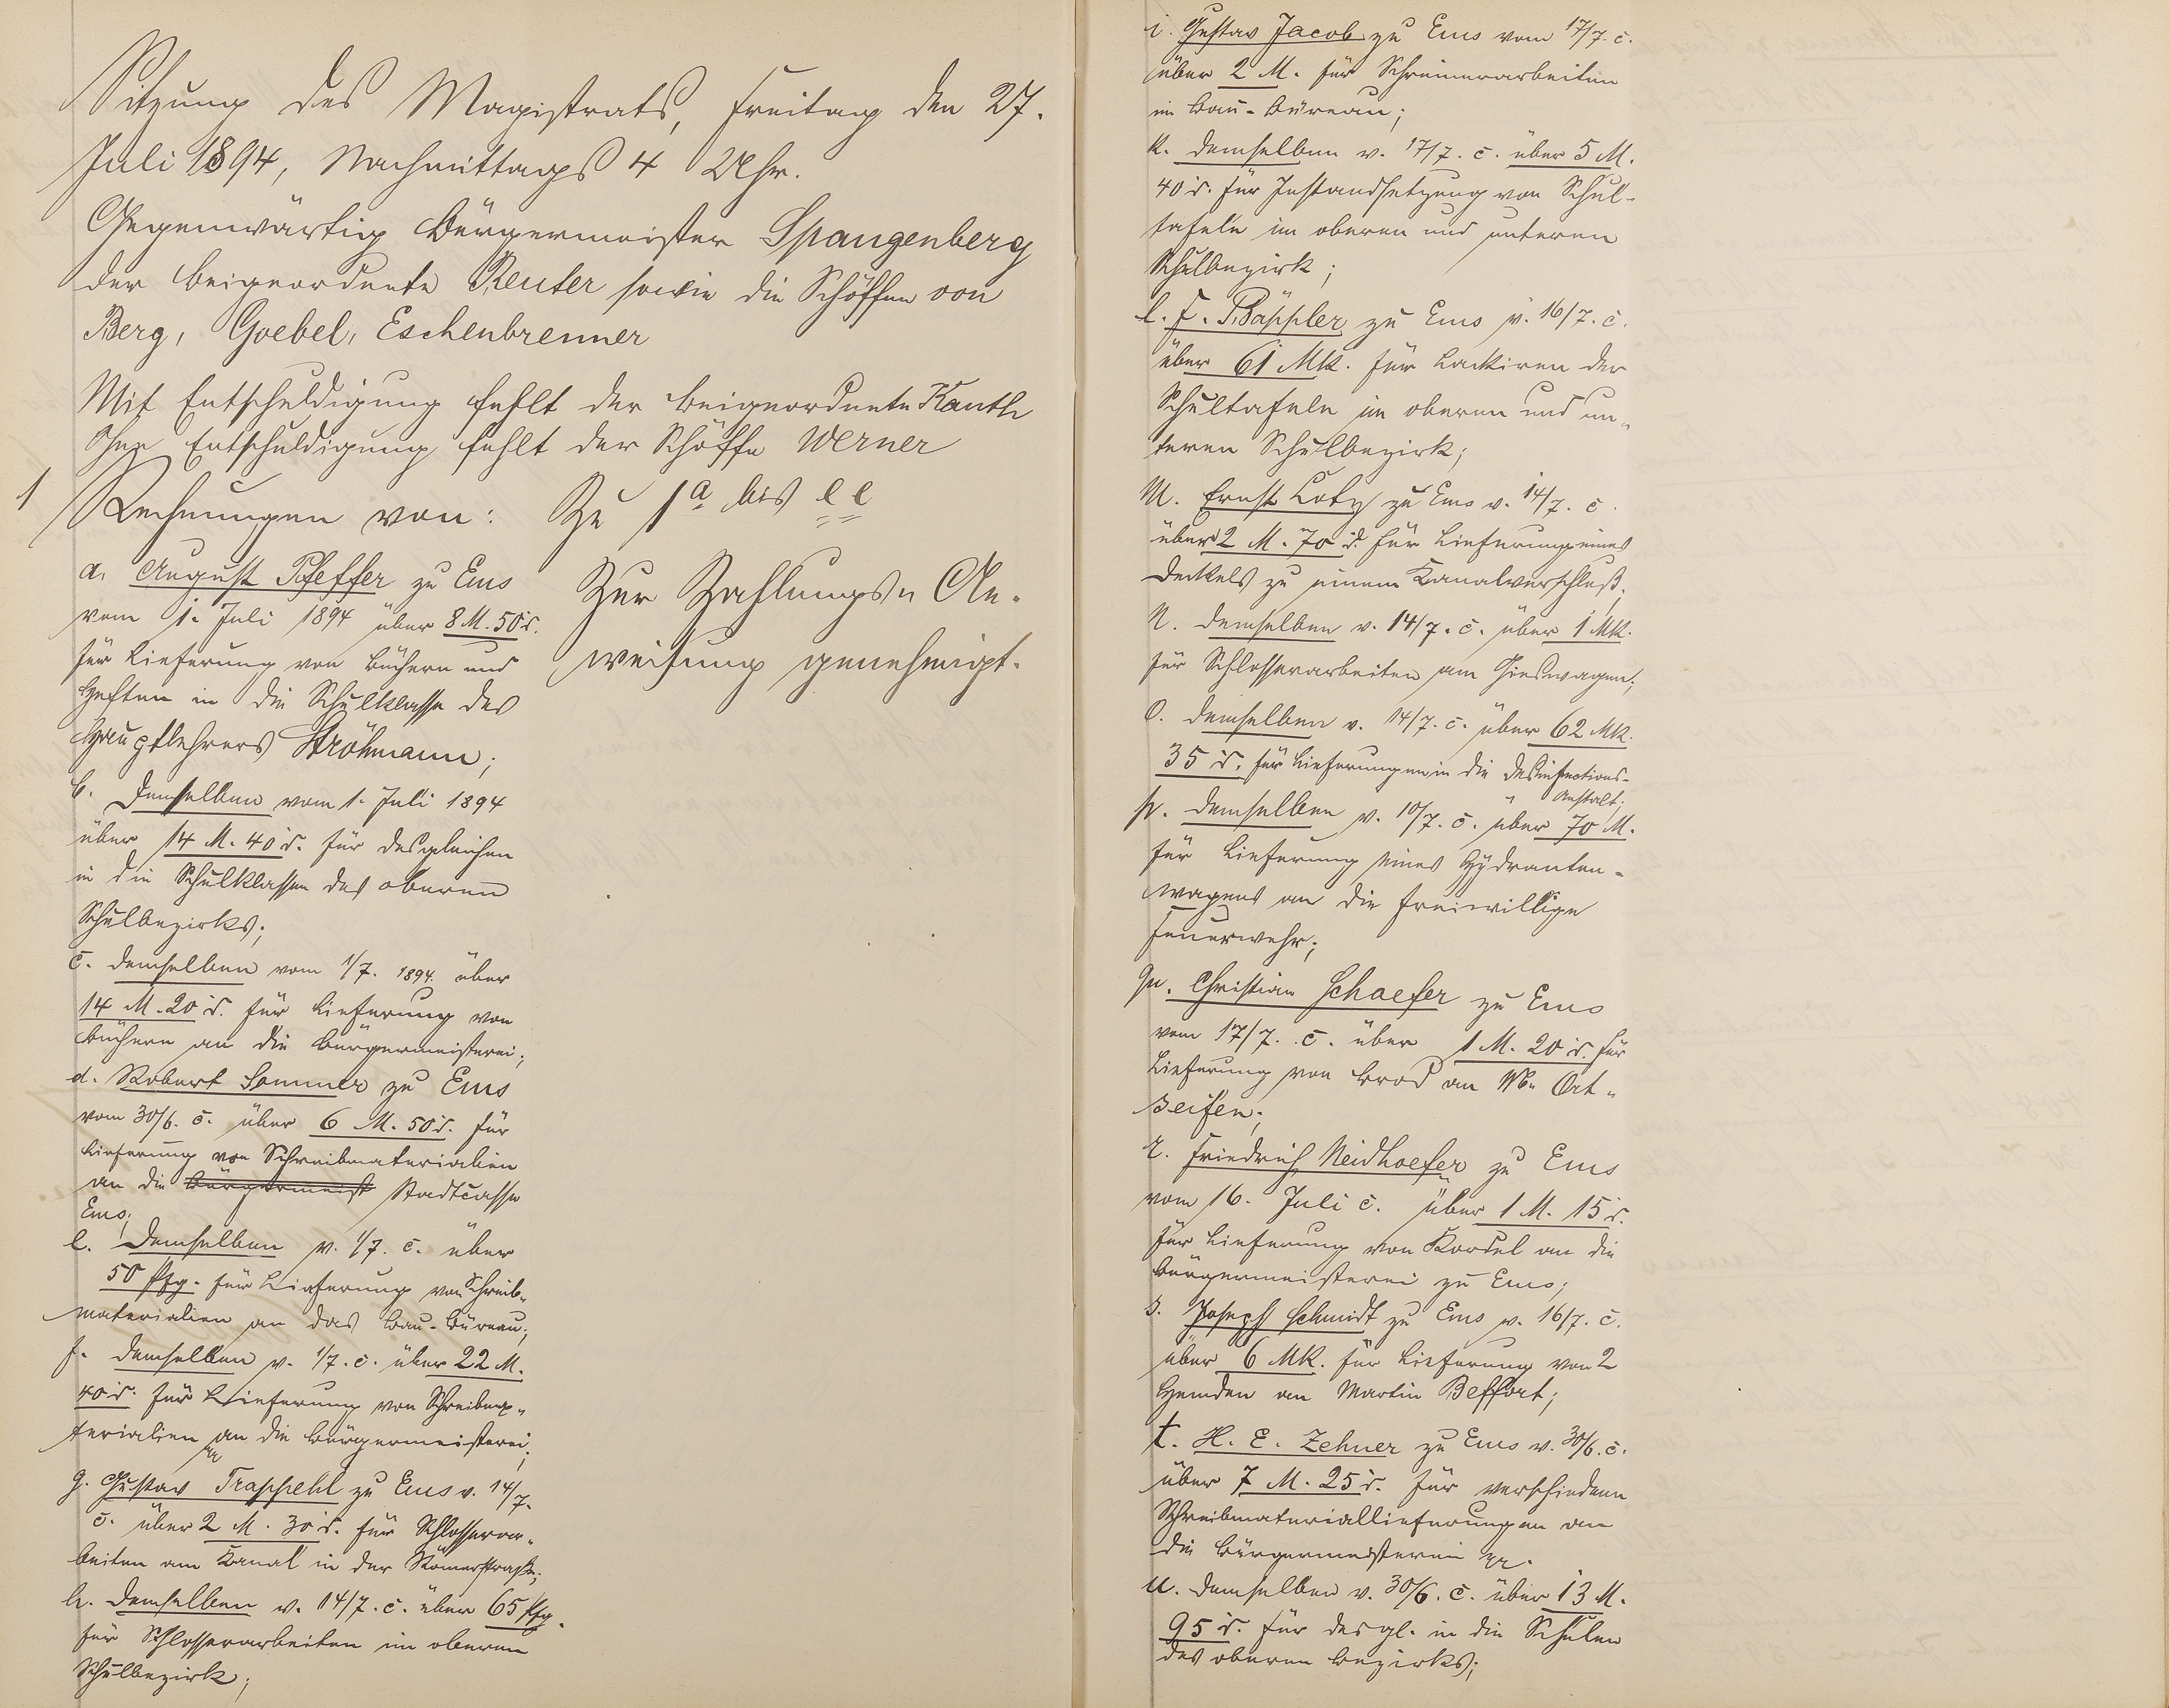 Sitzung des Magistrats, Freitag den 27.
Juli 1894, Nachmittags 4 Uhr.
Gegenwärtig Bürgermeister Spangenberg
der Beigeordnete Reuter sowie die Schöffen von
Berg, Goebel, Eschenbrenner
Mit Entschuldigung fehlt der Beigeordnete Kauth
Ohne Entschuldigung fehlt der Schöffe Werner
1 Rechnungen von:
a. August Pfeffer zu Ems
vom 1. Juli 1894 über 8 M. 50 d.
für Lieferung von Büchern und
Heften in die Schulklasse des
Hauptlehrers Ströhmann;
b. Demselben vom 1. Juli 1894
über 14 M. 40 d. für desgleichen
in die Schulklassen des oberen
Schulbezirks;
c. demselben vom 1/7. 1894. über
14 M. 20 d. für Lieferung von
Büchern an die Bürgermeisterei;
d. Robert Sommer zu Ems
vom 30/6. c. über 6 M. 50 d. für
Lieferung von Schreibmaterialien
an die Bürgermeist Stadtcasse
Ems;
e. Demselben v. 1/7. c. über
50 Pfg. für Lieferung von Schreib-
materialien an das Bau-Büreau;
f. demselben v. 1/7. c. über 22 M.
40 d. für Lieferung von Schreibma-
terialien an die Bürgermeisterei;
g. Gustav Trappehl zu Ems v. 14/7.
c. über 2 M. 30 d. für Schlosserar-
beiten am Kanal in der Römerstraße;
h. Demselben v. 14/7. c. über 65 Pfg.
für Schlosserarbeiten im oberen
Schulbezirk;
Zu 1 a bis ee
Zur Zahlungs- An-
weisung genehmigt.
i. Gustav Jacob zu Ems vom 17/7. c.
über 2 M. für Schreinerarbeiten
im Bau-Büreau;
k. demselben v. 17/7. c. über 5 M.
40 d. für Instandsetzung von Schul-
tafeln im oberen und unteren
Schulbezirk;
l. F. Bäppler zu Ems v. 16/7. c.
über 61 Mk. für Lackiren der
Schultafeln im oberen und un-
teren Schulbezirk;
M. Ernst Lotz zu Ems v. 14/7. c.
über 2 M. 70 d. für Lieferung eines
Deckels zu einem Kanalverschluß;
N. demselben v. 14/7. c. über 1 Mk.
für Schlosserarbeiten am Gieswagen;
O. demselben v. 14/7. c. über 62 Mk.
35 d. für Lieferungen in die Desinfections-
Anstalt;
p. demselben v. 10/7. c. über 70 M.
für Lieferung eines Hydranten-
wagens an die freiwillige
Feuerwehr;
qu. Christian Schaefer zu Ems
vom 17/7. c. über 1 M. 20 d. für
Lieferung von Brod an Ww. Ort-
seifen;
r. Friedrich Neidhoefer zu Ems
vom 16. Juli c. über 1 M. 15 d.
für Lieferung von Kordel an die
Bürgermeisterei zu Ems;
s. Joseph Schmidt zu Ems v. 16/7. c.
über 6 Mk. für Lieferung von 2
Hemden an Martin Beffort;
t. H. E. Zehner zu Ems v. 30/6. c.
über 7 M. 25 d. für verschiedene
Schreibmateriallieferungen an
die Bürgermeisterei
u. demselben v. 30/6. c. über 13 M.
95 d. für desgl. in die Schulen
des oberen Bezirks;